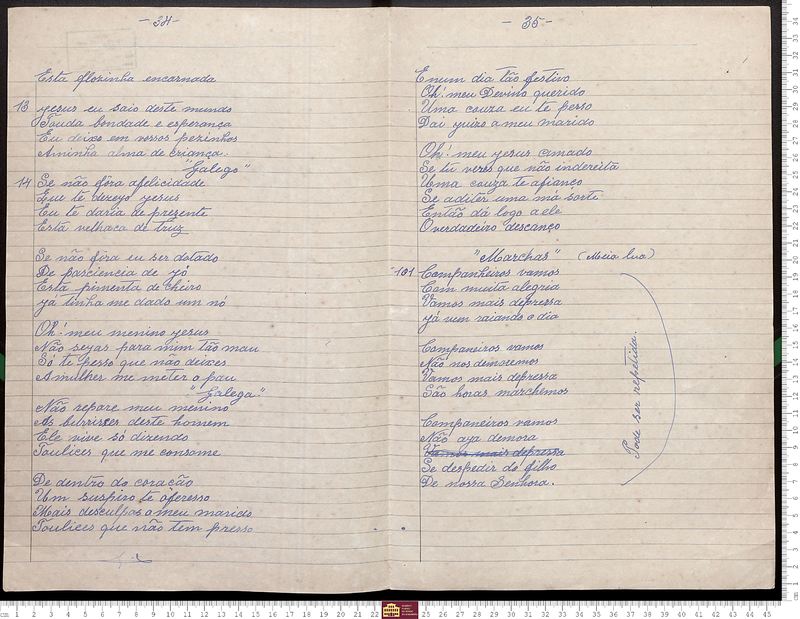 - 34 -
Esta flozinha encarnada
13 Jesus eu saio deste mundo
Touda bondade e esperança
Eu deixo em vossos pezinhos
Aminha alma de criança.
"Galego"
14 Se não fôra afelicidade
Que te dezejo Jesus
Eu te daria de prezente
Esta velhaca de truz
Se não fôra eu ser dotado
De pasciencia de Jó
Esta pimenta de cheiro
Já tinha me dado um nó
Oh! meu menino Jesus
Não sejas para mim tão mau
Só te pesso que não deixes
A mulher me meter o pau
"Galega"
Não repare meu menino
As burrisses deste homem
Ele vive só dizendo
Toulices que me consome
De dentro do coração
Um suspiro te oferesso
Mais desculpas a meu marido
Toulices que não tem presso
- 35 -
E num dia tão festivo
Oh! meu Devino querido
Uma couza eu te pesso
Dai juizo a meu marido
Oh! meu Jesus amado
Se tu veres que não indereita
Uma couza te afianço
Se aditer uma má sorte
Então dá logo a ele
O verdadeiro descanço
"Marchas" (Meia lua)
101 Companheiros vamos
Com muita alegria
Vamos mais depressa
Já vem raiando o dia
Companeiros vamos
Não nos demoremos
Vamos mais depressa
São horas marchemos
Companeiros vamos
Não aja demora
Vamos mais depressa
Se despedir do filho
De nossa Senhora.
Pode ser repetida.